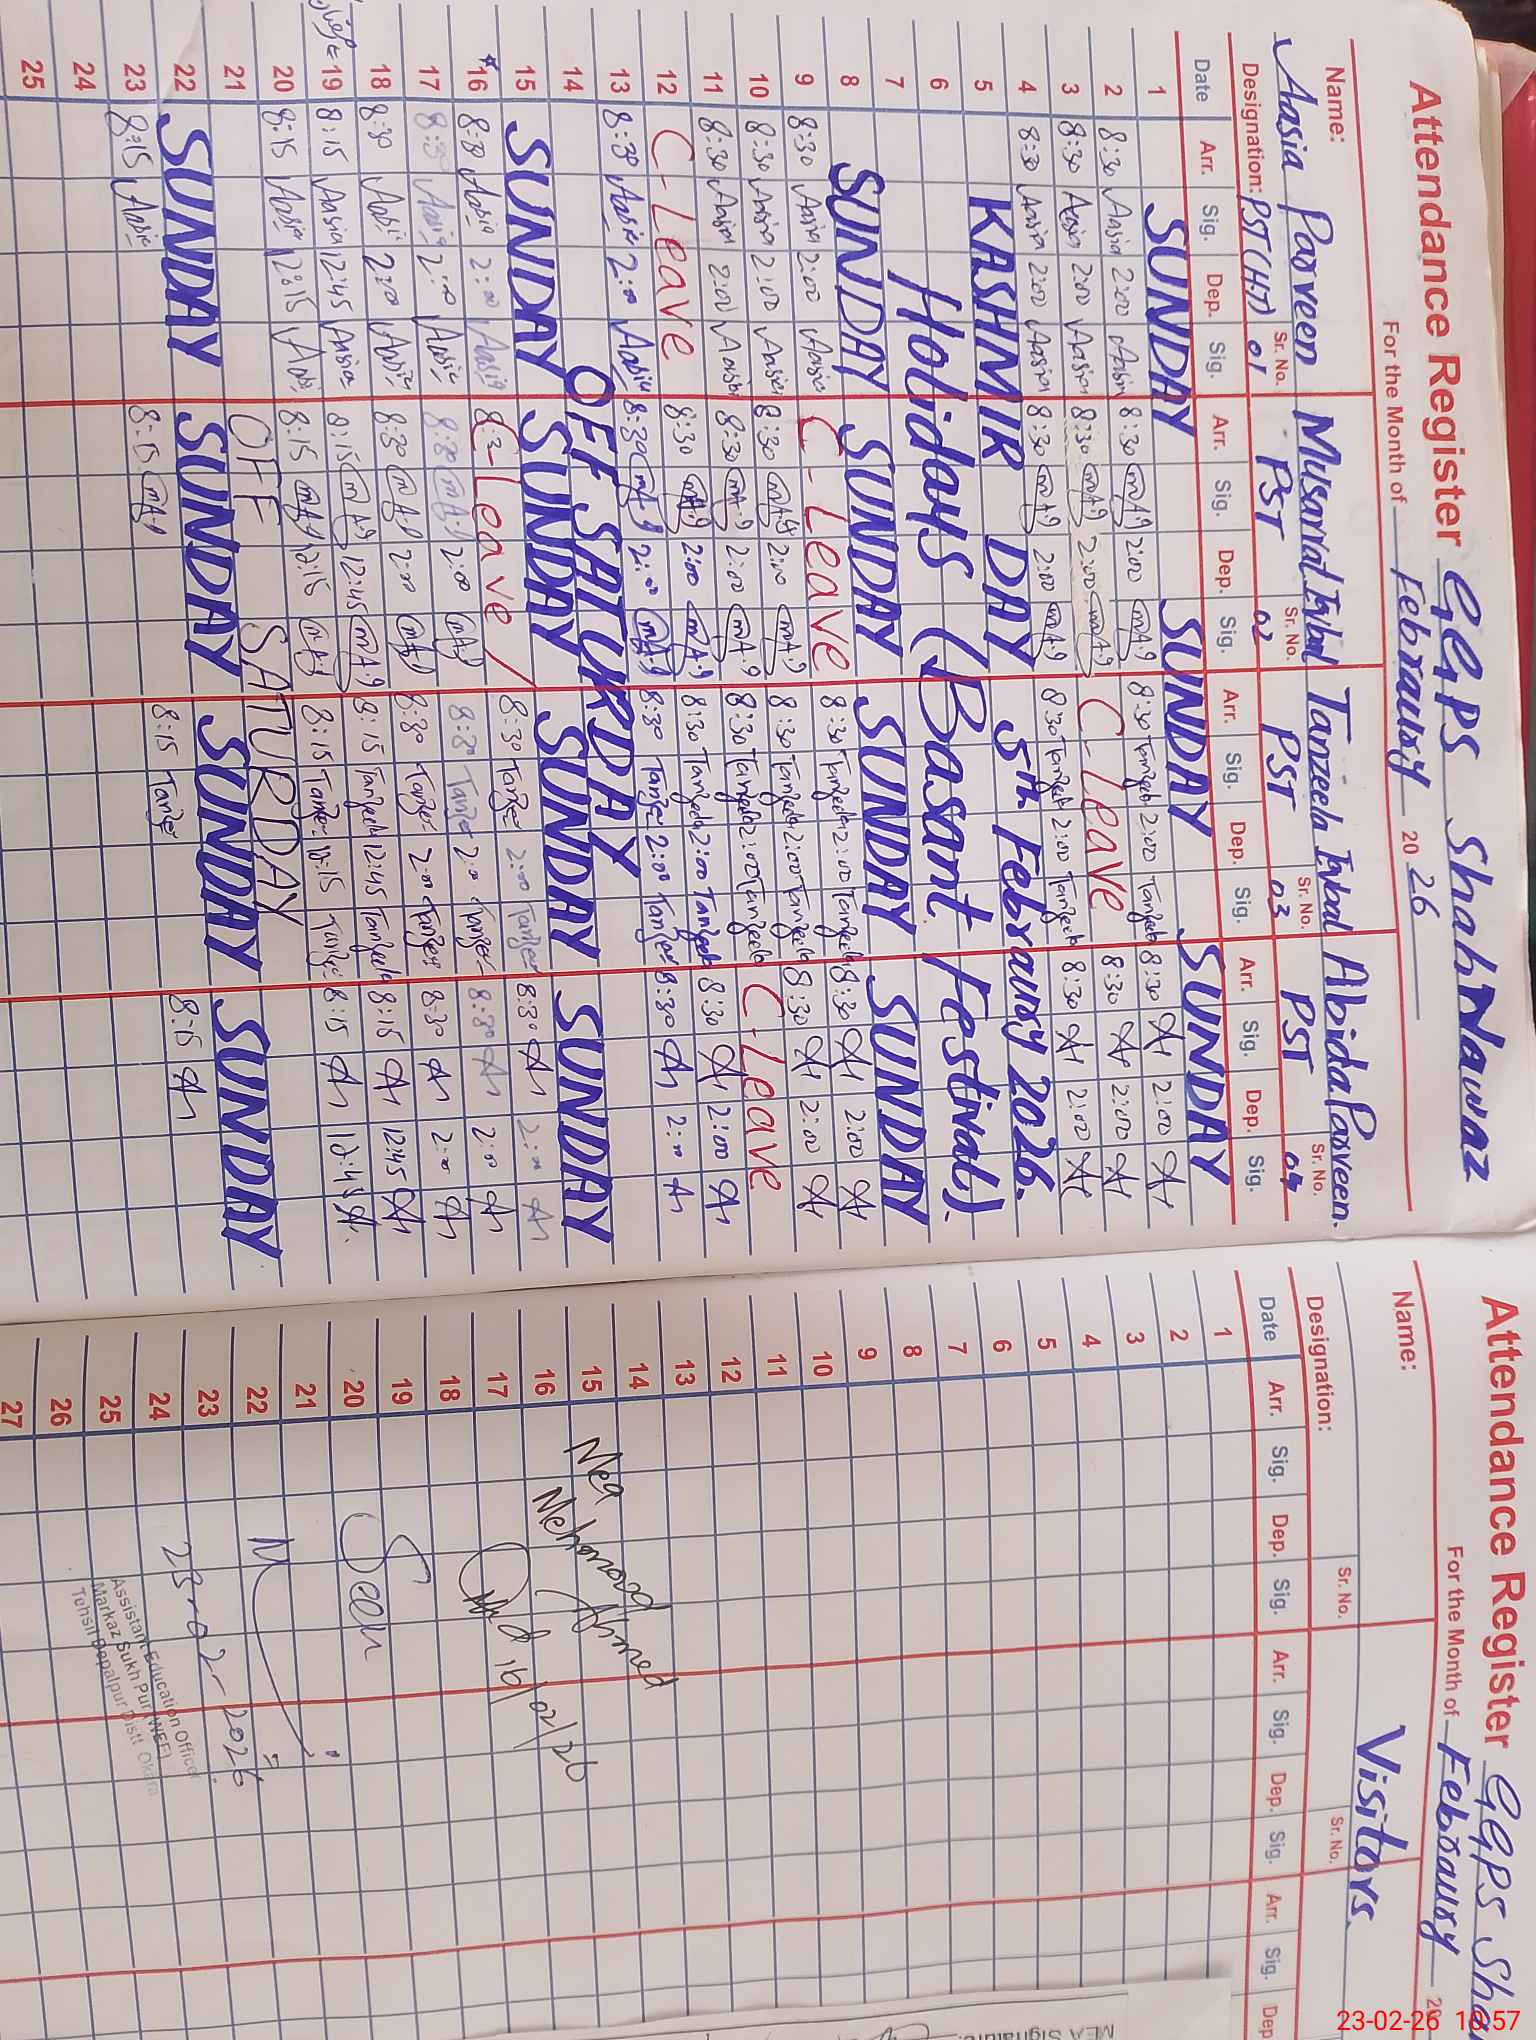 Attendance Register GGPS Shah Nawaz
For the Month of Febraury 20 26
Name: Aasia Parveen Musarrat Iqbal Tanzeela Iqbal Abida Parveen.
Designation: PST (H.T) Sr. No. 01 PST Sr. No. 02 PST Sr. No. 03 PST Sr. No. 04
Date Arr. Sig. Dep. Sig. Arr. Sig. Dep. Sig. Arr. Sig. Dep. Sig. Arr. Sig. Dep. Sig.
1 SUNDAY SUNDAY SUNDAY
2 8:30 Aasia 2:00 Aasia 8:30 2:00 8:30 Tanzeela 2:00 Tanzeela 8:30 2:00
3 8:30 Aasia 2:00 Aasia 8:30 2:00 C-Leave 8:30 2:00
4 8:30 Aasia 2:00 Aasia 8:30 2:00 8:30 Tanzeela 2:00 Tanzeela 8:30 2:00
5 KASHMIR DAY 5th Febraury 2026.
6 Holidays (Basant Festival).
7
8 SUNDAY SUNDAY SUNDAY SUNDAY
9 8:30 Aasia 2:00 Aasia C-Leave 8:30 Tanzeela 2:00 Tanzeela 8:30 2:00
10 8:30 Aasia 2:00 Aasia 8:30 2:00 8:30 Tanzeela 2:00 Tanzeela 8:30 2:00
11 8:30 Aasia 2:00 Aasia 8:30 2:00 8:30 Tanzeela 2:00 Tanzeela C-Leave
12 C-Leave 8:30 2:00 8:30 Tanzeela 2:00 Tanzeela 8:30 2:00
13 8:30 Aasia 2:00 Aasia 8:30 2:00 8:30 2:00 8:30 2:00
14 OFF SATURDAY
15 SUNDAY SUNDAY SUNDAY SUNDAY
16 8:30 Aasia 2:00 Aasia C-Leave 8:30 2:00 8:30 2:00
17 8:30 Aasia 2:00 Aasia 8:30 2:00 8:30 2:00 8:30 2:00
18 8:30 Aasia 2:00 Aasia 8:30 2:00 8:30 2:00 8:30 2:00
19 8:15 Aasia 12:45 Aasia 8:15 12:45 8:15 Tanzeela 12:45 Tanzeela 8:15 12:45
20 8:15 Aasia 12:15 8:15 12:15 8:15 12:15 8:15 12:45
21 OFF SATURDAY
22 SUNDAY SUNDAY SUNDAY SUNDAY
23 8:15 Aasia 8:15 8:15 8:15
24
25
Attendance Register GGPS Sha
For the Month of Febraury 20
Name: Visitors.
Designation: Sr. No. Sr. No.
Date Arr. Sig. Dep. Sig. Arr. Sig. Dep. Sig. Arr. Sig. Dep
1
2
3
4
5
6
7
8
9
10
11
12
13
14
15 Mea
16 Mehmood Ahmed
17 16/02/26
18
19
20 Seen
21
22
23 23-02-2026
24 Assistant Education Officer
25 Markaz Sukh Pur (WEE)
26 Tehsil Depalpur Distt Okara
27
MEA Signature:
23-02-26 10:57